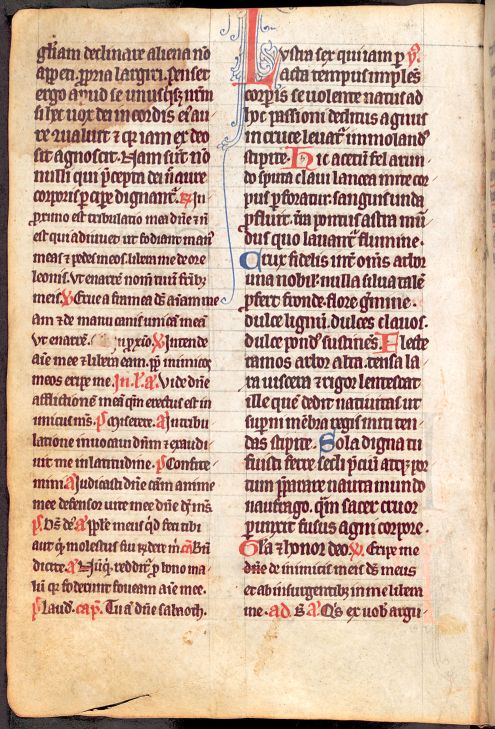 gl̄iam declinare aliena nō
appeti. ꝓpria largiri. senser
ergo apud se unusq̄sꝫ nr̄m
si hec uox dei in cordis ei9 au
re ualuit ⁊ qꝛ iam ex deo
sit agnoscit. Nam sūt nō
nulli qui p̄cepta dei n̄ aure
corporis ꝑcipe dignant᷑. R Ju
ꝓximo est tribulatio mea dn̄e ⁊ n̄
est qui adiuuet ut fodiant man9
meas ⁊ pedes meos. libera me de ore
leonis. ut enarrē nom̄ tuū fr̄ibꝫ
meis. V Erue a framea d̄s aīam me
am ⁊ de manu canis unicā meā
Vt enarrē. V Intende
aīe mee ⁊ libera eam. ꝓp̄ inimicos
meos eripe me. In l. a. Vide dn̄e
afflictionē meam qm̄ erectus est in
imicus m̄s. p̄s Miserere. A In tribu
latione inuocaui dn̄m ⁊ exaudi
uit me in latitudine. p̄s Confite
mini. A Iudicasti dn̄e cām anime
mee defensor uite mee dn̄e d̄s m̄s
p̄s D̄s d̄s A Pop̄le meus qd̄ feci tibi
aut qd̄ molestus fui r̄nde m̄. cā Bn̄
dicite. A Nūqd̄ reddit᷑ ꝓ bono ma
lū qꝛ foderunt foueam aīe mee.
p̄s Laud̄. cap̄. Tu a᷑ dn̄e sabaoth.
Lustra sex qui iam ꝑ
acta tempus implēs
corporis se uolente natus ad
hoc passioni deditus agnus
in cruce leuat᷑ immoland9
stipite. Hic acetū fel arun
do sputa claui lancea mite cor
pus ꝑforat᷑ sanguis unda
ꝓfluit. t̄ra pontus astra mū
dus quo lauant᷑ flumine.
Crux fidelis int̄ om̄s arbor
una nobil᷑ nulla silua talē
ꝓfert fronde. flore germine.
dulce lignū. dulces clauos.
dulce pond9 sustinēs. Flecte
ramos arbor alta. tensa la
xa uiscera ⁊ rigor lentescat
ille quē dedit natiuitas ut
sup̄ni mēbra regis miti ten
das stipite. Sola digna tu
fuisti ferre secli p̄ciū atqꝫ por
tum p̄parare nauta mundo
naufrago. qm̄ sacer cruor
ꝑunxit fusus agni corpore.
Gl̄a ⁊ honor deo. V Eripe me
dn̄e de inimicis meis d̄s meus
et ab insurgentibꝫ in me libera
me. ad B. A Q̄s ex uob̄ argu